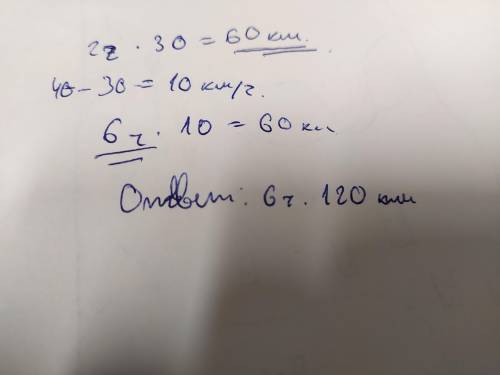 2ч · 30 = 60 км.
40 - 30 = 10 км/ч.
6 ч · 10 = 60 км
Ответ: 6 ч. 120 км